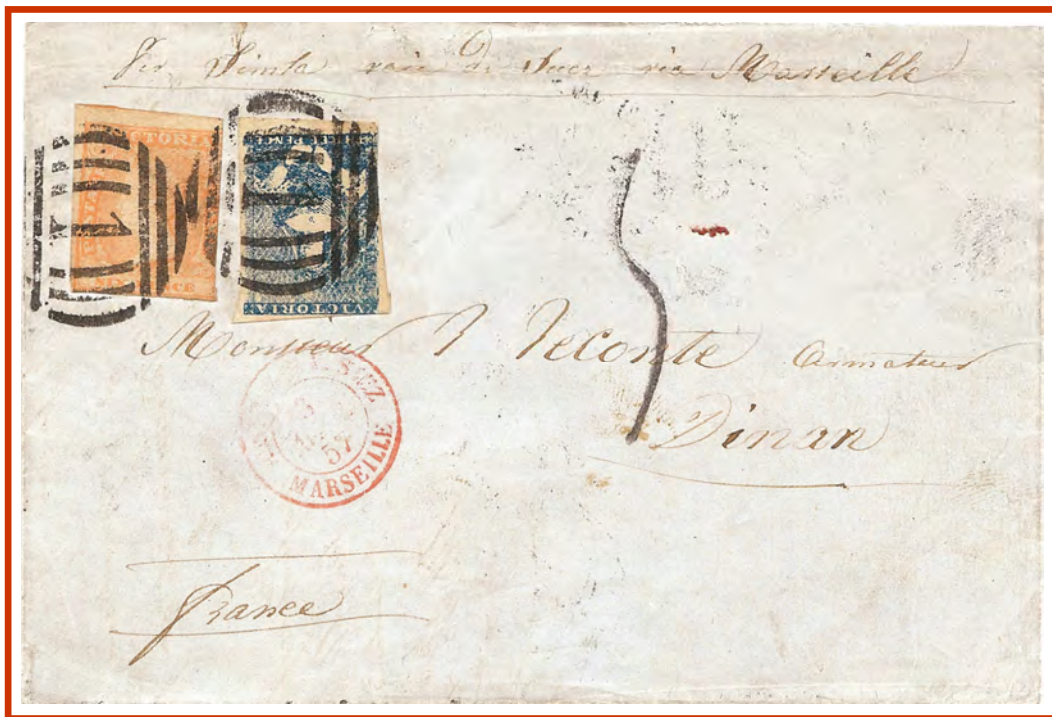 Per Simla voie de Suez via Marseille
VICTORIA
VICTORIA
1
1
5
Monsieur J LeConte Armateur
Dinan
SUEZ
3
57
MARSEILLE
France